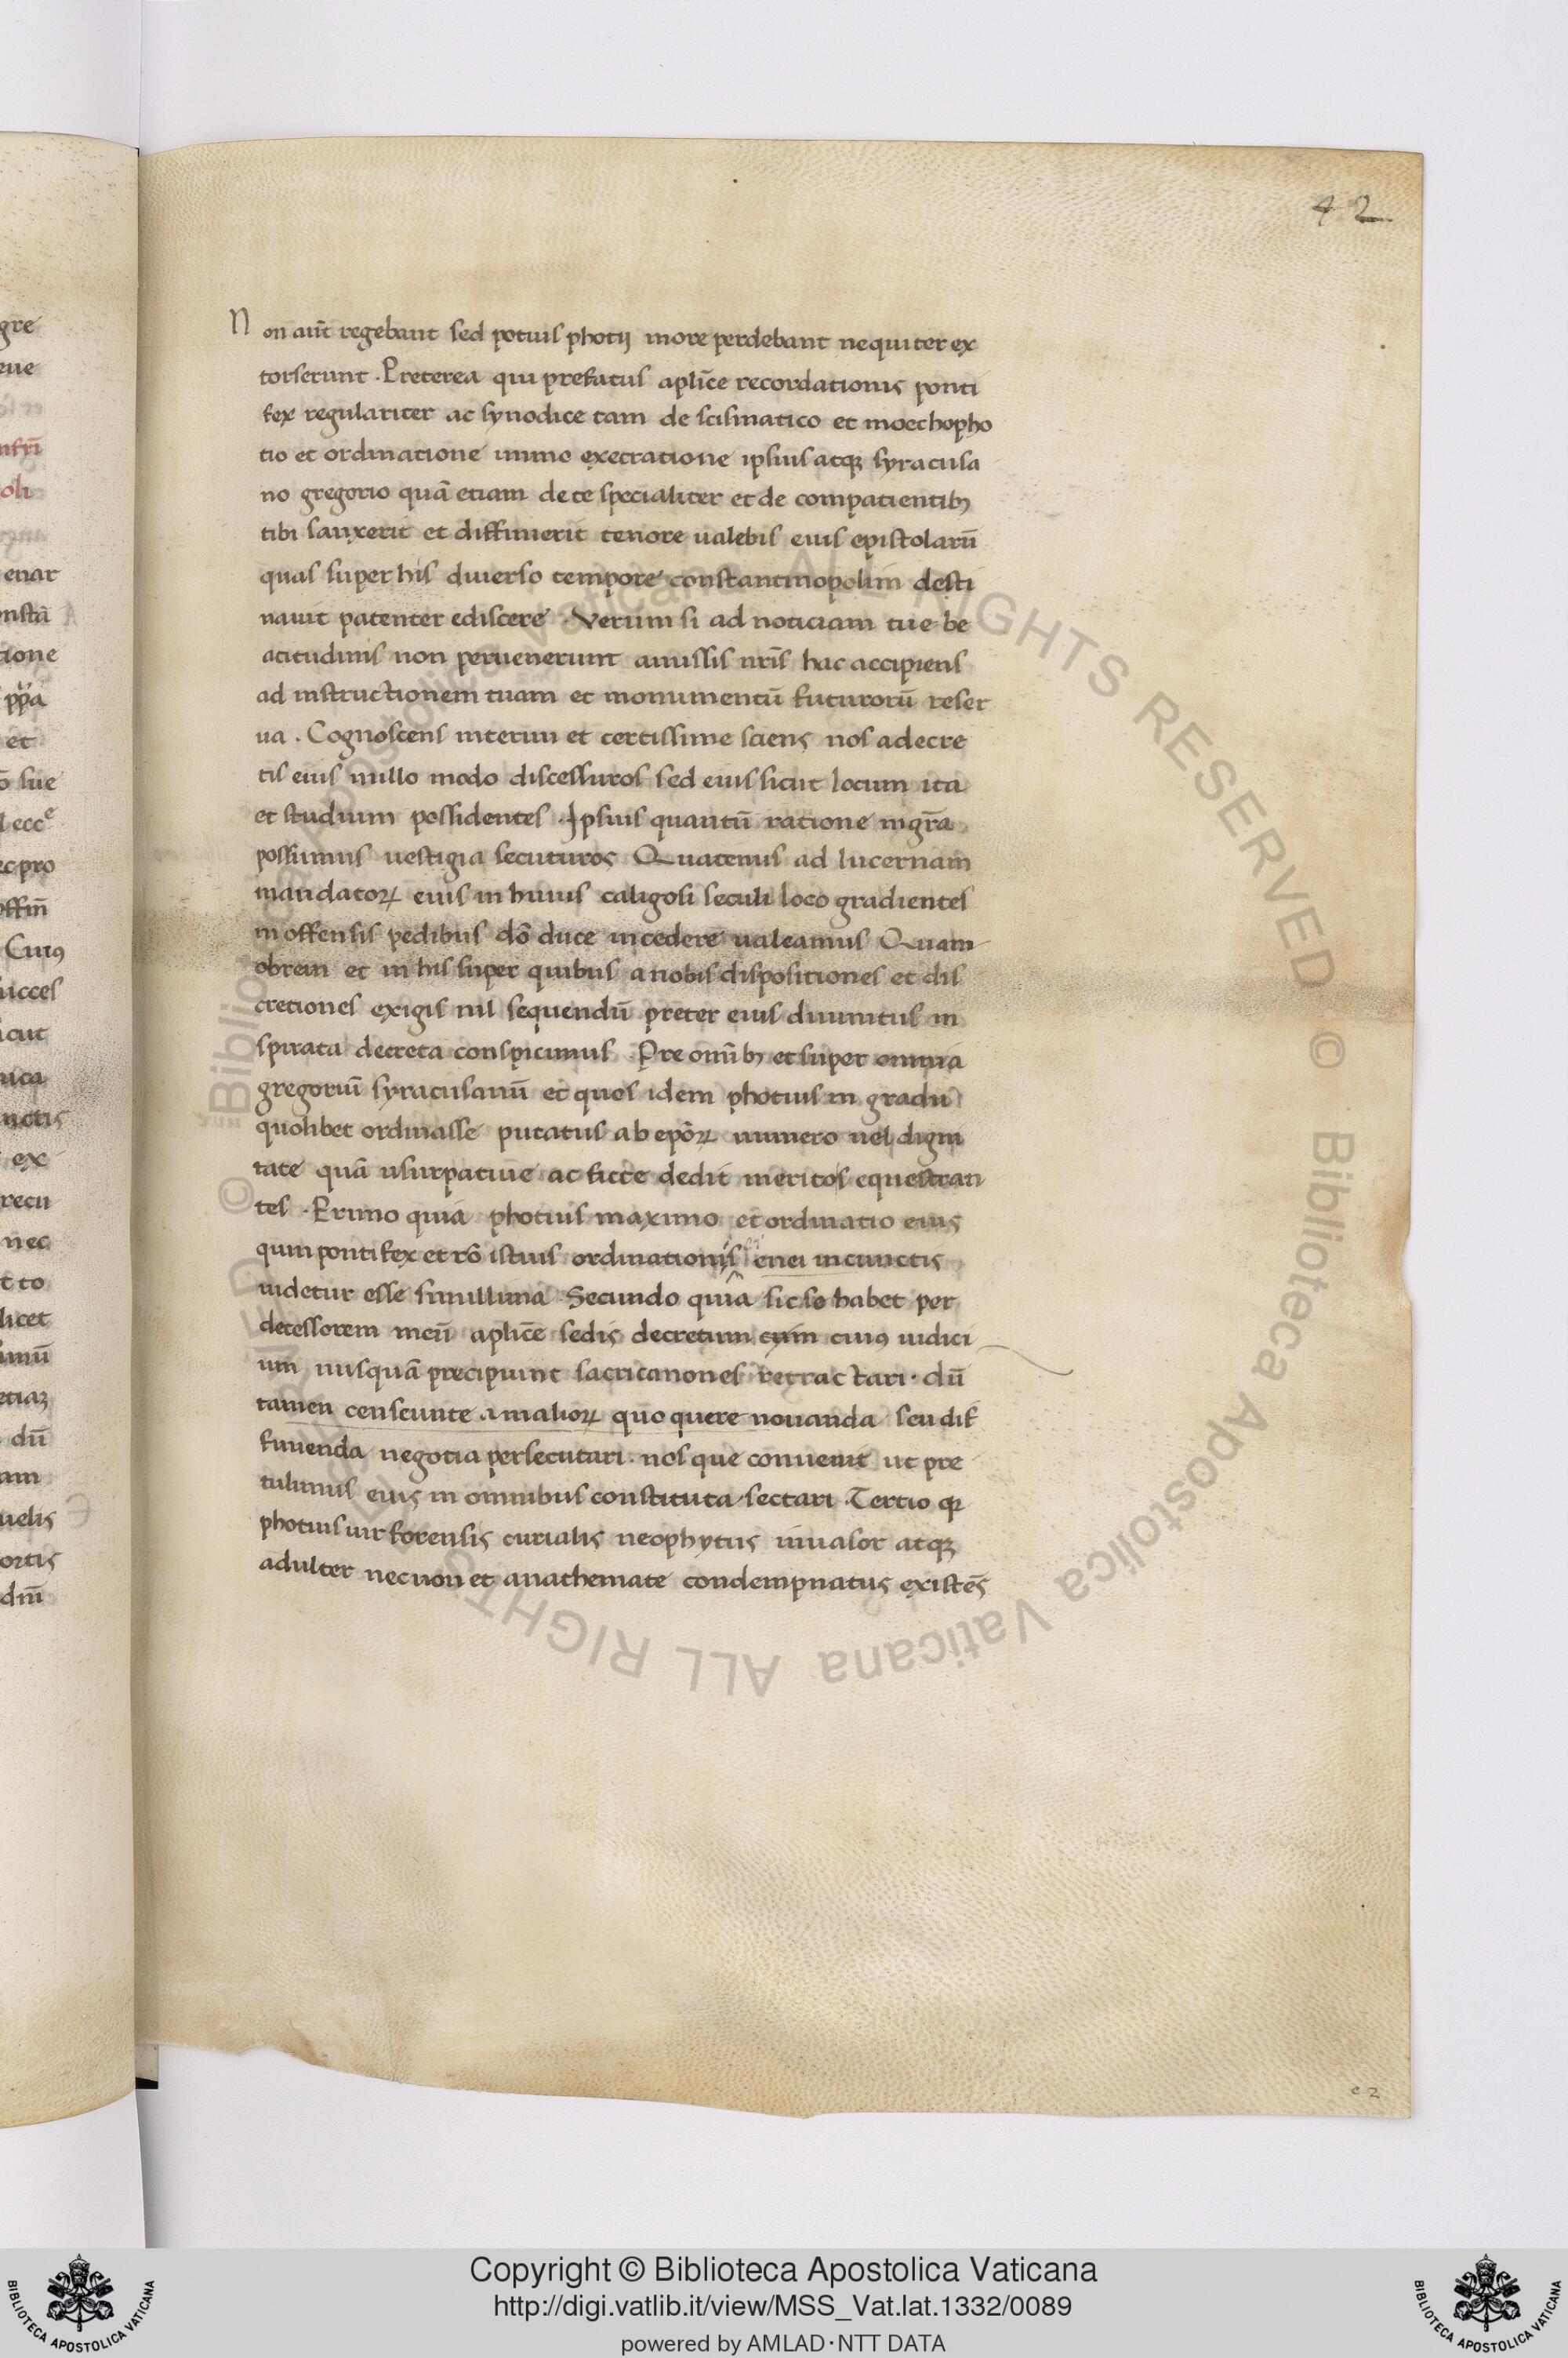 42
Non aut̄ regebant sed potius photij more perdebant nequiter ex
torserunt . Preterea qui prefatus aplīce recordationis ponti
fex regulariter ac synodice tam de scismatico et moechopho
tio et ordinatione immo execratione ipsius atqꝫ syracusa
no gregorio quā etiam de te specialiter et de compatientibꝫ
tibi sanxerit et diffinierit tenore ualebis eius epistolarū
quas super his diuerso tempore constantinopolim desti
nauit patenter ediscere . Verum si ad noticiam tue be
atitudinis non peruenerunt amissis nrīs hac accipiens
ad instructionem tuam et monumentū futurorū reser
ua . Cognoscens interim et certissime sciens nos a decre
tis eius nullo modo discessuros sed eius sicut locum ita
et studium possidentes . Ipsius quantū ratione ingr̄a
possumus uestigia secuturos Quatenus ad lucernam
mandatoꝝ eius in huius caligosi seculi loco gradientes
inoffensis pedibus dō duce incedere ualeamus Quam
obrem et in his super quibus a nobis dispositiones et dis
cretiones exigis nil sequendū preter eius diuinitus in
spirata decreta conspicimus . Pre omībꝫ et super omnia
gregoriū syracusanū et quos idem photius in gradu
quolibet ordinasse putatus ab epōꝝ numero uel digni
tate quā usurpatiue ac ficte dedit meritos equestran
tes . Primo quia photius maximo et ordinatio eius
qum pontifex et rō istius ordinationis enei in cunctis
uidetur esse simillima . Secundo quia sic se habet per
decessorem meū aplīce sedis decretum cum cuiꝰ iudici
um nusquā precipiunt sacri canones retractari . dū
tamen censcunte a maiioꝝ quo quere nouanda seu dif
finienda negotia persecutari . nos que conuenit ut pre
tulimus eius in omnibus constituta sectari . Tertio qꝫ
photius uir forensis curialis neophytus inuasor atqꝫ
adulter necnon et anathemate condempnatus existēs
e 2
gre
eue
nfrī
oli
enar
nstā
tione
ppa
et
ō sue
l ecce
ec pro
offin̄
Cuiꝰ
ucces
icut
uca
nctis
ex
recu
nec
t to
licet
imū
etiaꝫ
dū
am
uelis
ortis
dnī
© Biblioteca Apostolica Vaticana ALL RIGHTS RESERVED © Biblioteca Apostolica Vaticana ALL RIGHTS RESERVED
Copyright © Biblioteca Apostolica Vaticana
http://digi.vatlib.it/view/MSS_Vat.lat.1332/0089
powered by AMLAD·NTT DATA
BIBLIOTECA APOSTOLICA VATICANA
BIBLIOTECA APOSTOLICA VATICANA